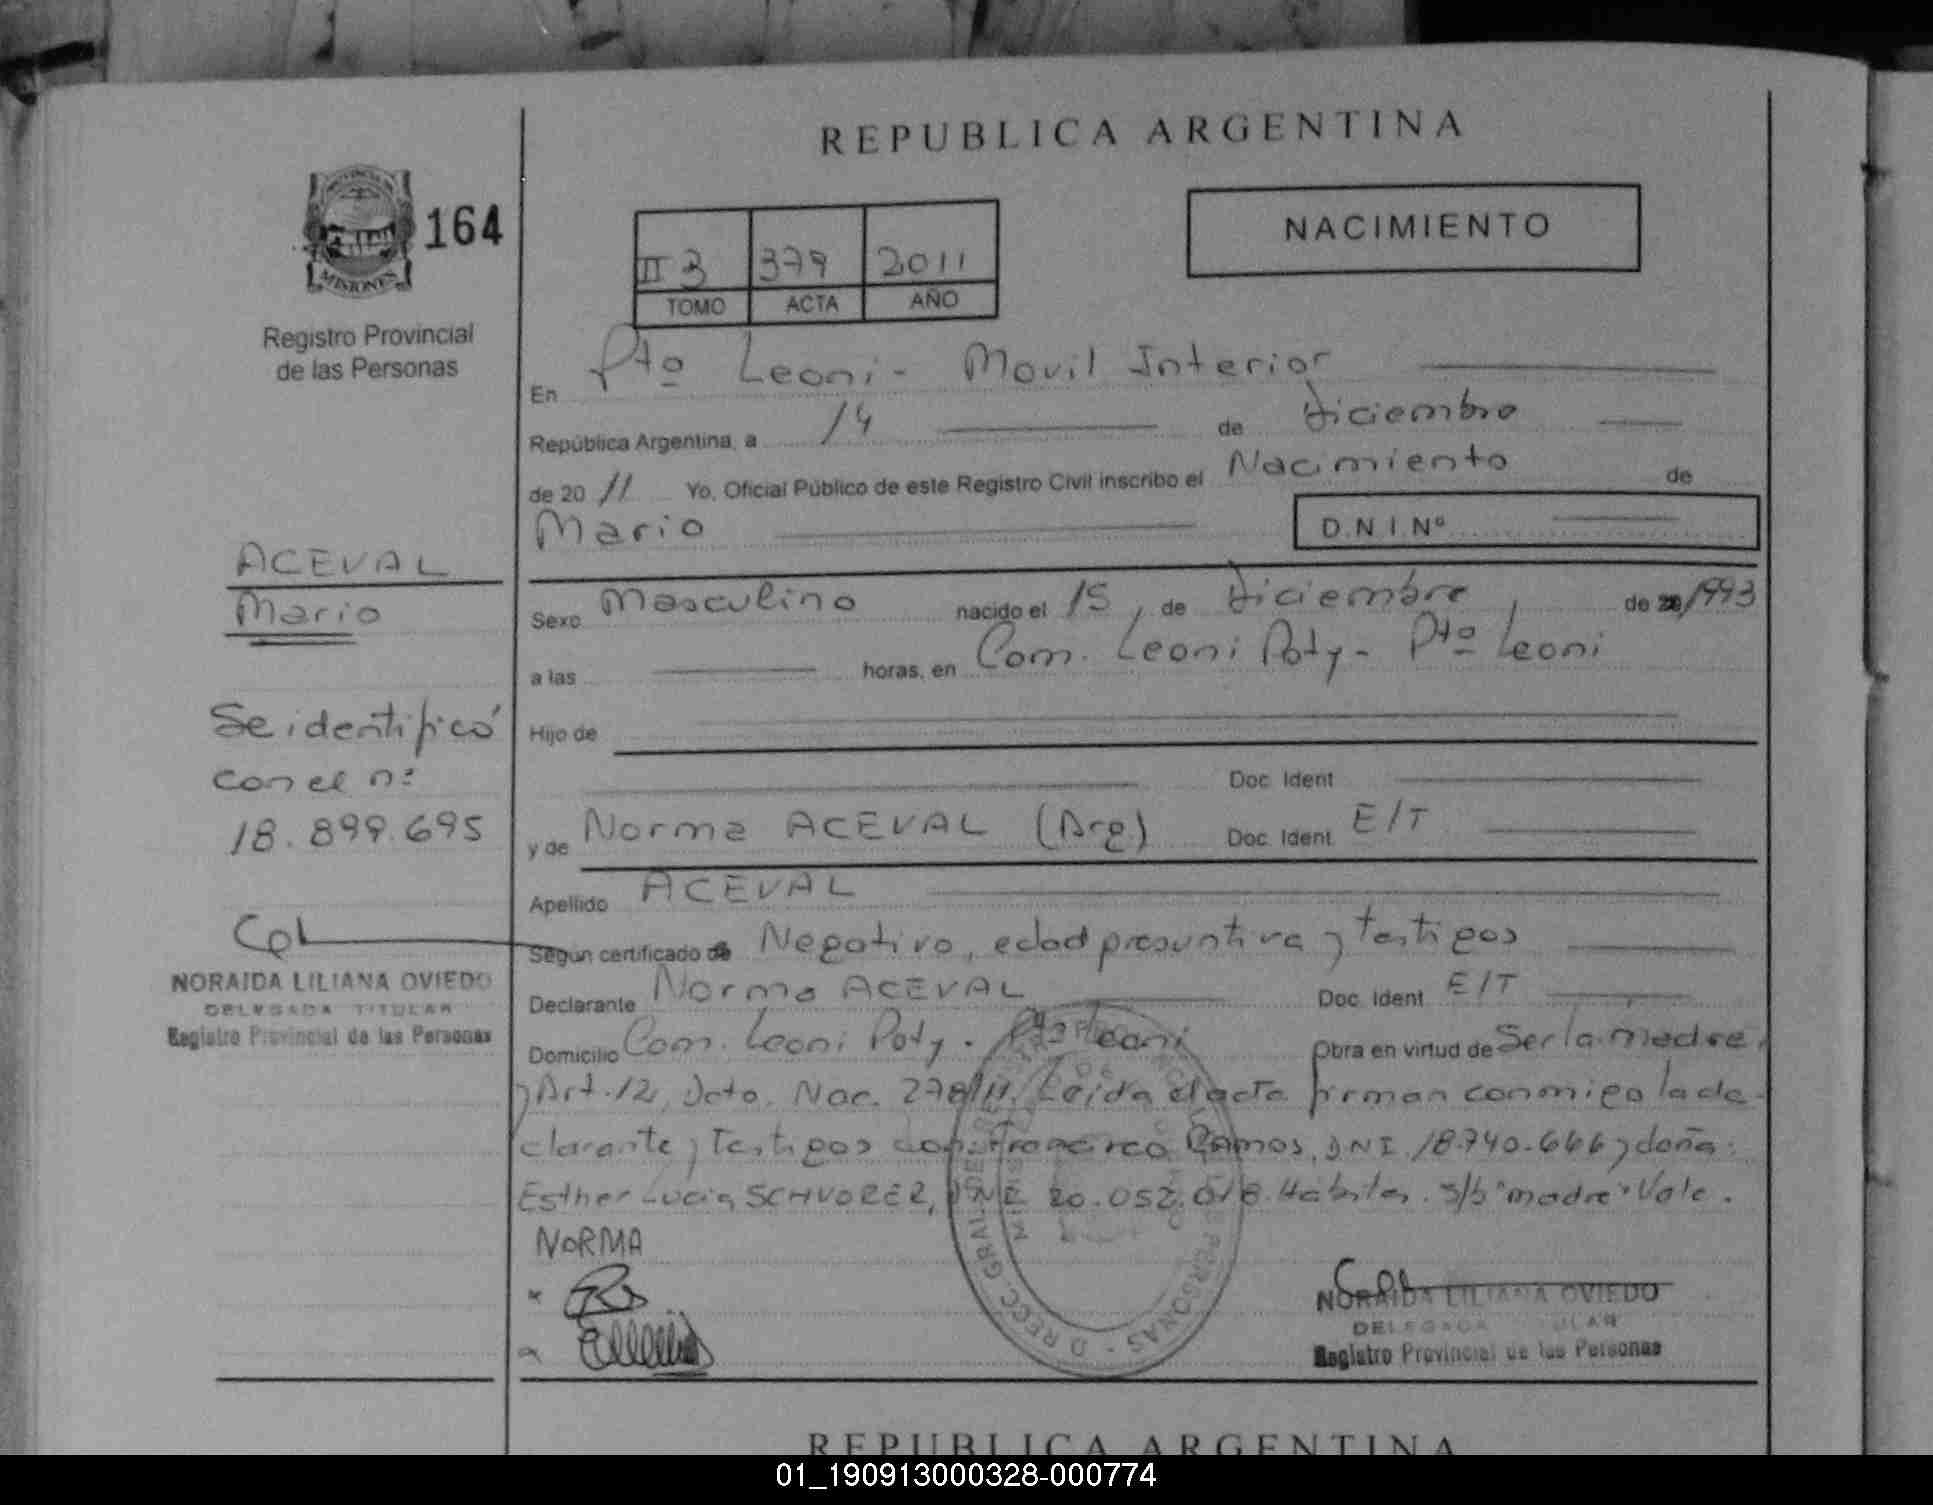 REPUBLICA ARGENTINA
MISIONES
164
Registro Provincial
de las Personas
II 3 379 2011
TOMO ACTA AÑO
NACIMIENTO
En Pto Leoni - Movil Interior
República Argentina, a 14 de diciembre
de 20 11 Yo, Oficial Público de este Registro Civil inscribo el Nacimiento de
Mario D.N.I.Nº
ACEVAL
Mario
Sexo Masculino nacido el 15, de diciembre, de 1993
a las horas, en Com. Leoni Poty - Pto Leoni
Se identificó
con el nº
18.899.695
Hijo de
Doc. Ident
y de Norma ACEVAL (Arg) Doc. Ident. E/T
Apellido ACEVAL
Según certificado de Negativo, edad presuntiva y testigos
NORAIDA LILIANA OVIEDO
DELEGADA TITULAR
Registro Provincial de las Personas
Declarante Norma ACEVAL Doc. Ident. E/T
Domicilio Com. Leoni Poty - Pto Leoni Obra en virtud de Ser la madre,
y Art. 12, Dcto. Nac. 278/11. Leída el acta firman conmigo la de-
clarante y testigos don Francisco Ramos, DNI 18.740.666 y doña:
Esther Lucia SCHVORER, DNI 20.052.018. Hábiles. S/b "madre" Vale.
NORMA
NORAIDA LILIANA OVIEDO
DELEGADA TITULAR
Registro Provincial de las Personas
REPUBLICA ARGENTINA
01_190913000328-000774